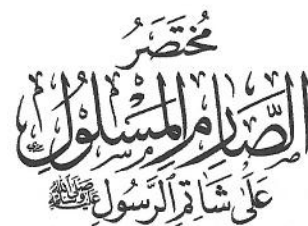 مُختَصَرُ
الصَّارِمِ المَسْلُولِ
عَلَى شَاتِمِ الرَّسُولِ ﷺ